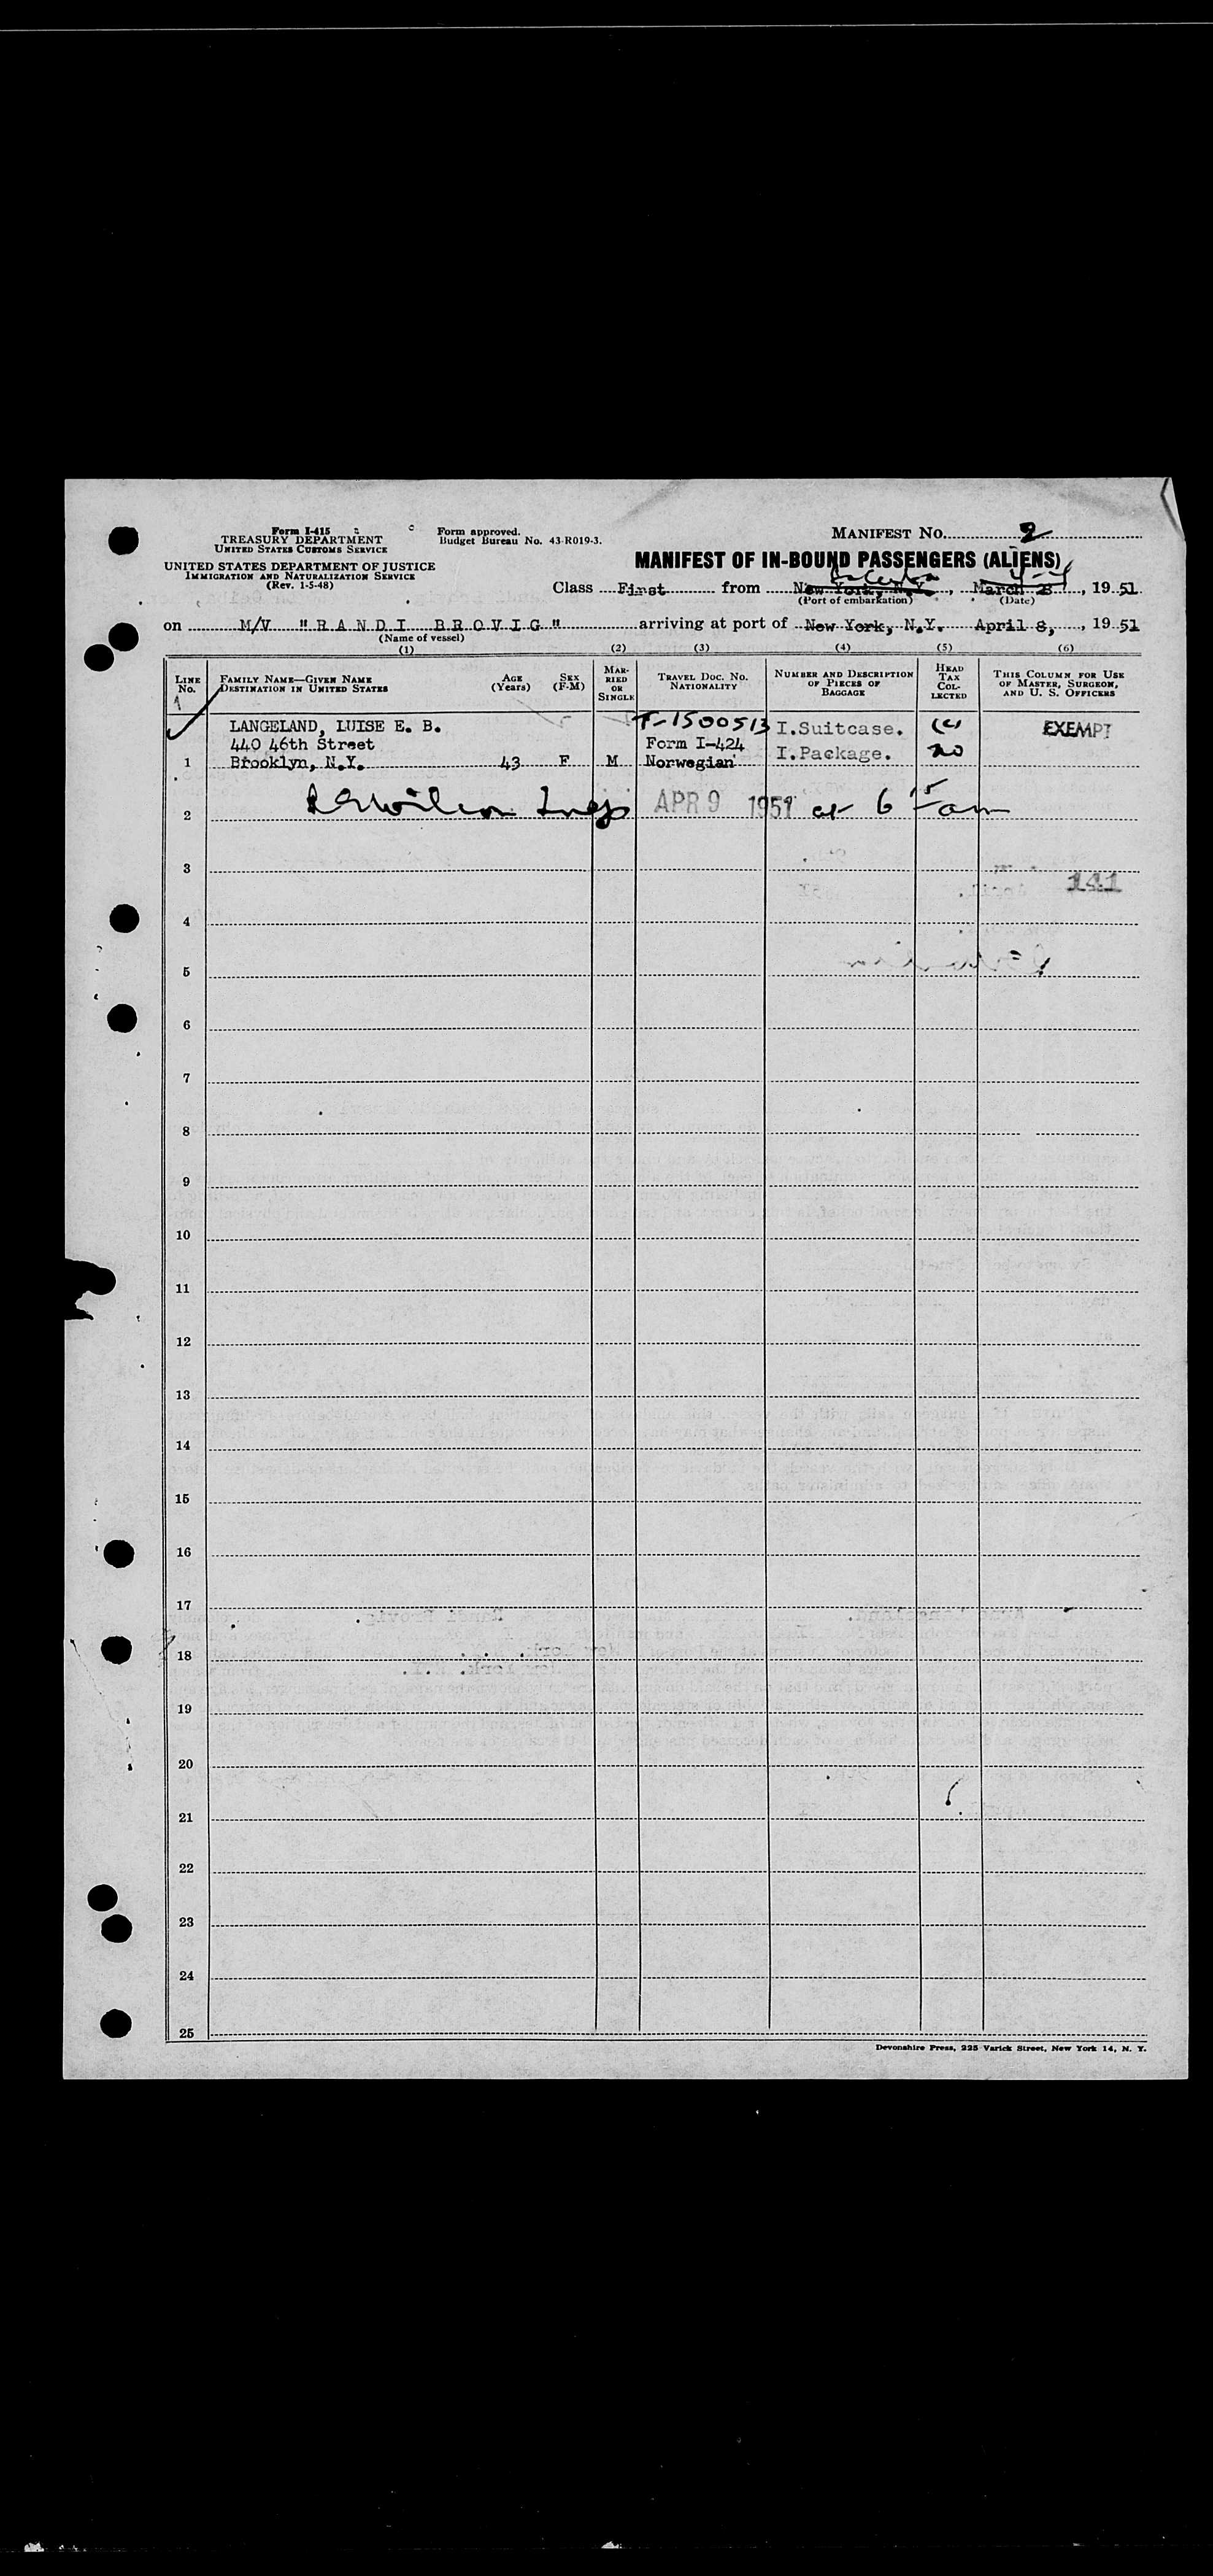 Form I-415
TREASURY DEPARTMENT
UNITED STATES CUSTOMS SERVICE
UNITED STATES DEPARTMENT OF JUSTICE
IMMIGRATION AND NATURALIZATION SERVICE
(Rev. 1-5-48)
Form approved.
Budget Bureau No. 43-R019-3.
MANIFEST No. 2
MANIFEST OF IN-BOUND PASSENGERS (ALIENS)
Class First from New York, N.Y., March 8, 19 51
(Port of embarkation) (Date)
on M/V "RANDI BROVIG" arriving at port of New York, N.Y. April 8, 19 51
(Name of vessel)
(1) (2) (3) (4) (5) (6)
LINE No.
FAMILY NAME—GIVEN NAME
DESTINATION IN UNITED STATES
AGE (Years)
SEX (F-M)
MARRIED OR SINGLE
TRAVEL DOC. NO. NATIONALITY
NUMBER AND DESCRIPTION OF PIECES OF BAGGAGE
HEAD TAX COLLECTED
THIS COLUMN FOR USE OF MASTER, SURGEON, AND U. S. OFFICERS
LANGELAND, LUISE E. B. T-1500513 I.Suitcase. EXEMPT
440 46th Street Form I-424 I.Package. no
1 Brooklyn, N.Y. 43 F M Norwegian
2 Insp APR 9 1951 at 6 15 am
3
141
4
5
6
7
8
9
10
11
12
13
14
15
16
17
18
19
20
21
22
23
24
25
Devonshire Press, 225 Varick Street, New York 14, N. Y.